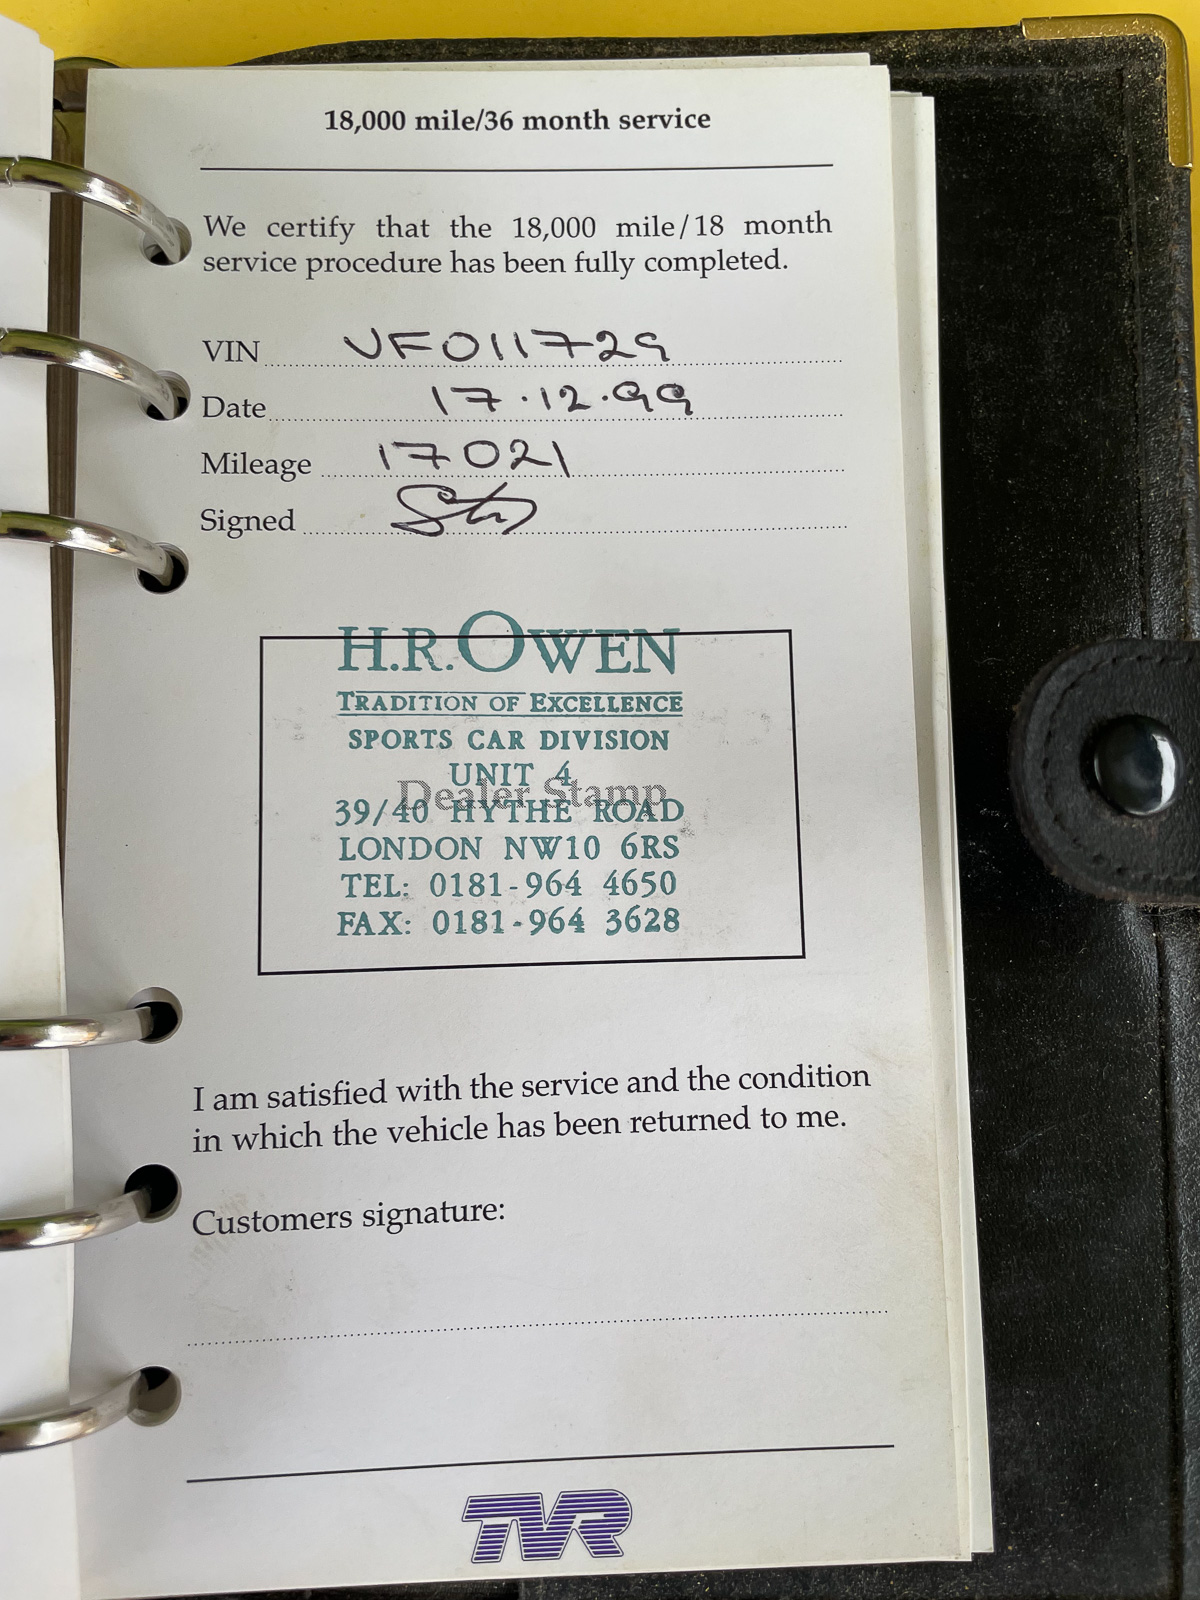 18,000 mile/36 month service
We certify that the 18,000 mile/18 month
service procedure has been fully completed.
VIN VF011729
Date 17.12.99
Mileage 17021
Signed
H.R. OWEN
TRADITION OF EXCELLENCE
SPORTS CAR DIVISION
UNIT 4
Dealer Stamp
39/40 HYTHE ROAD
LONDON NW10 6RS
TEL: 0181-964 4650
FAX: 0181-964 3628
I am satisfied with the service and the condition
in which the vehicle has been returned to me.
Customers signature:
TVR